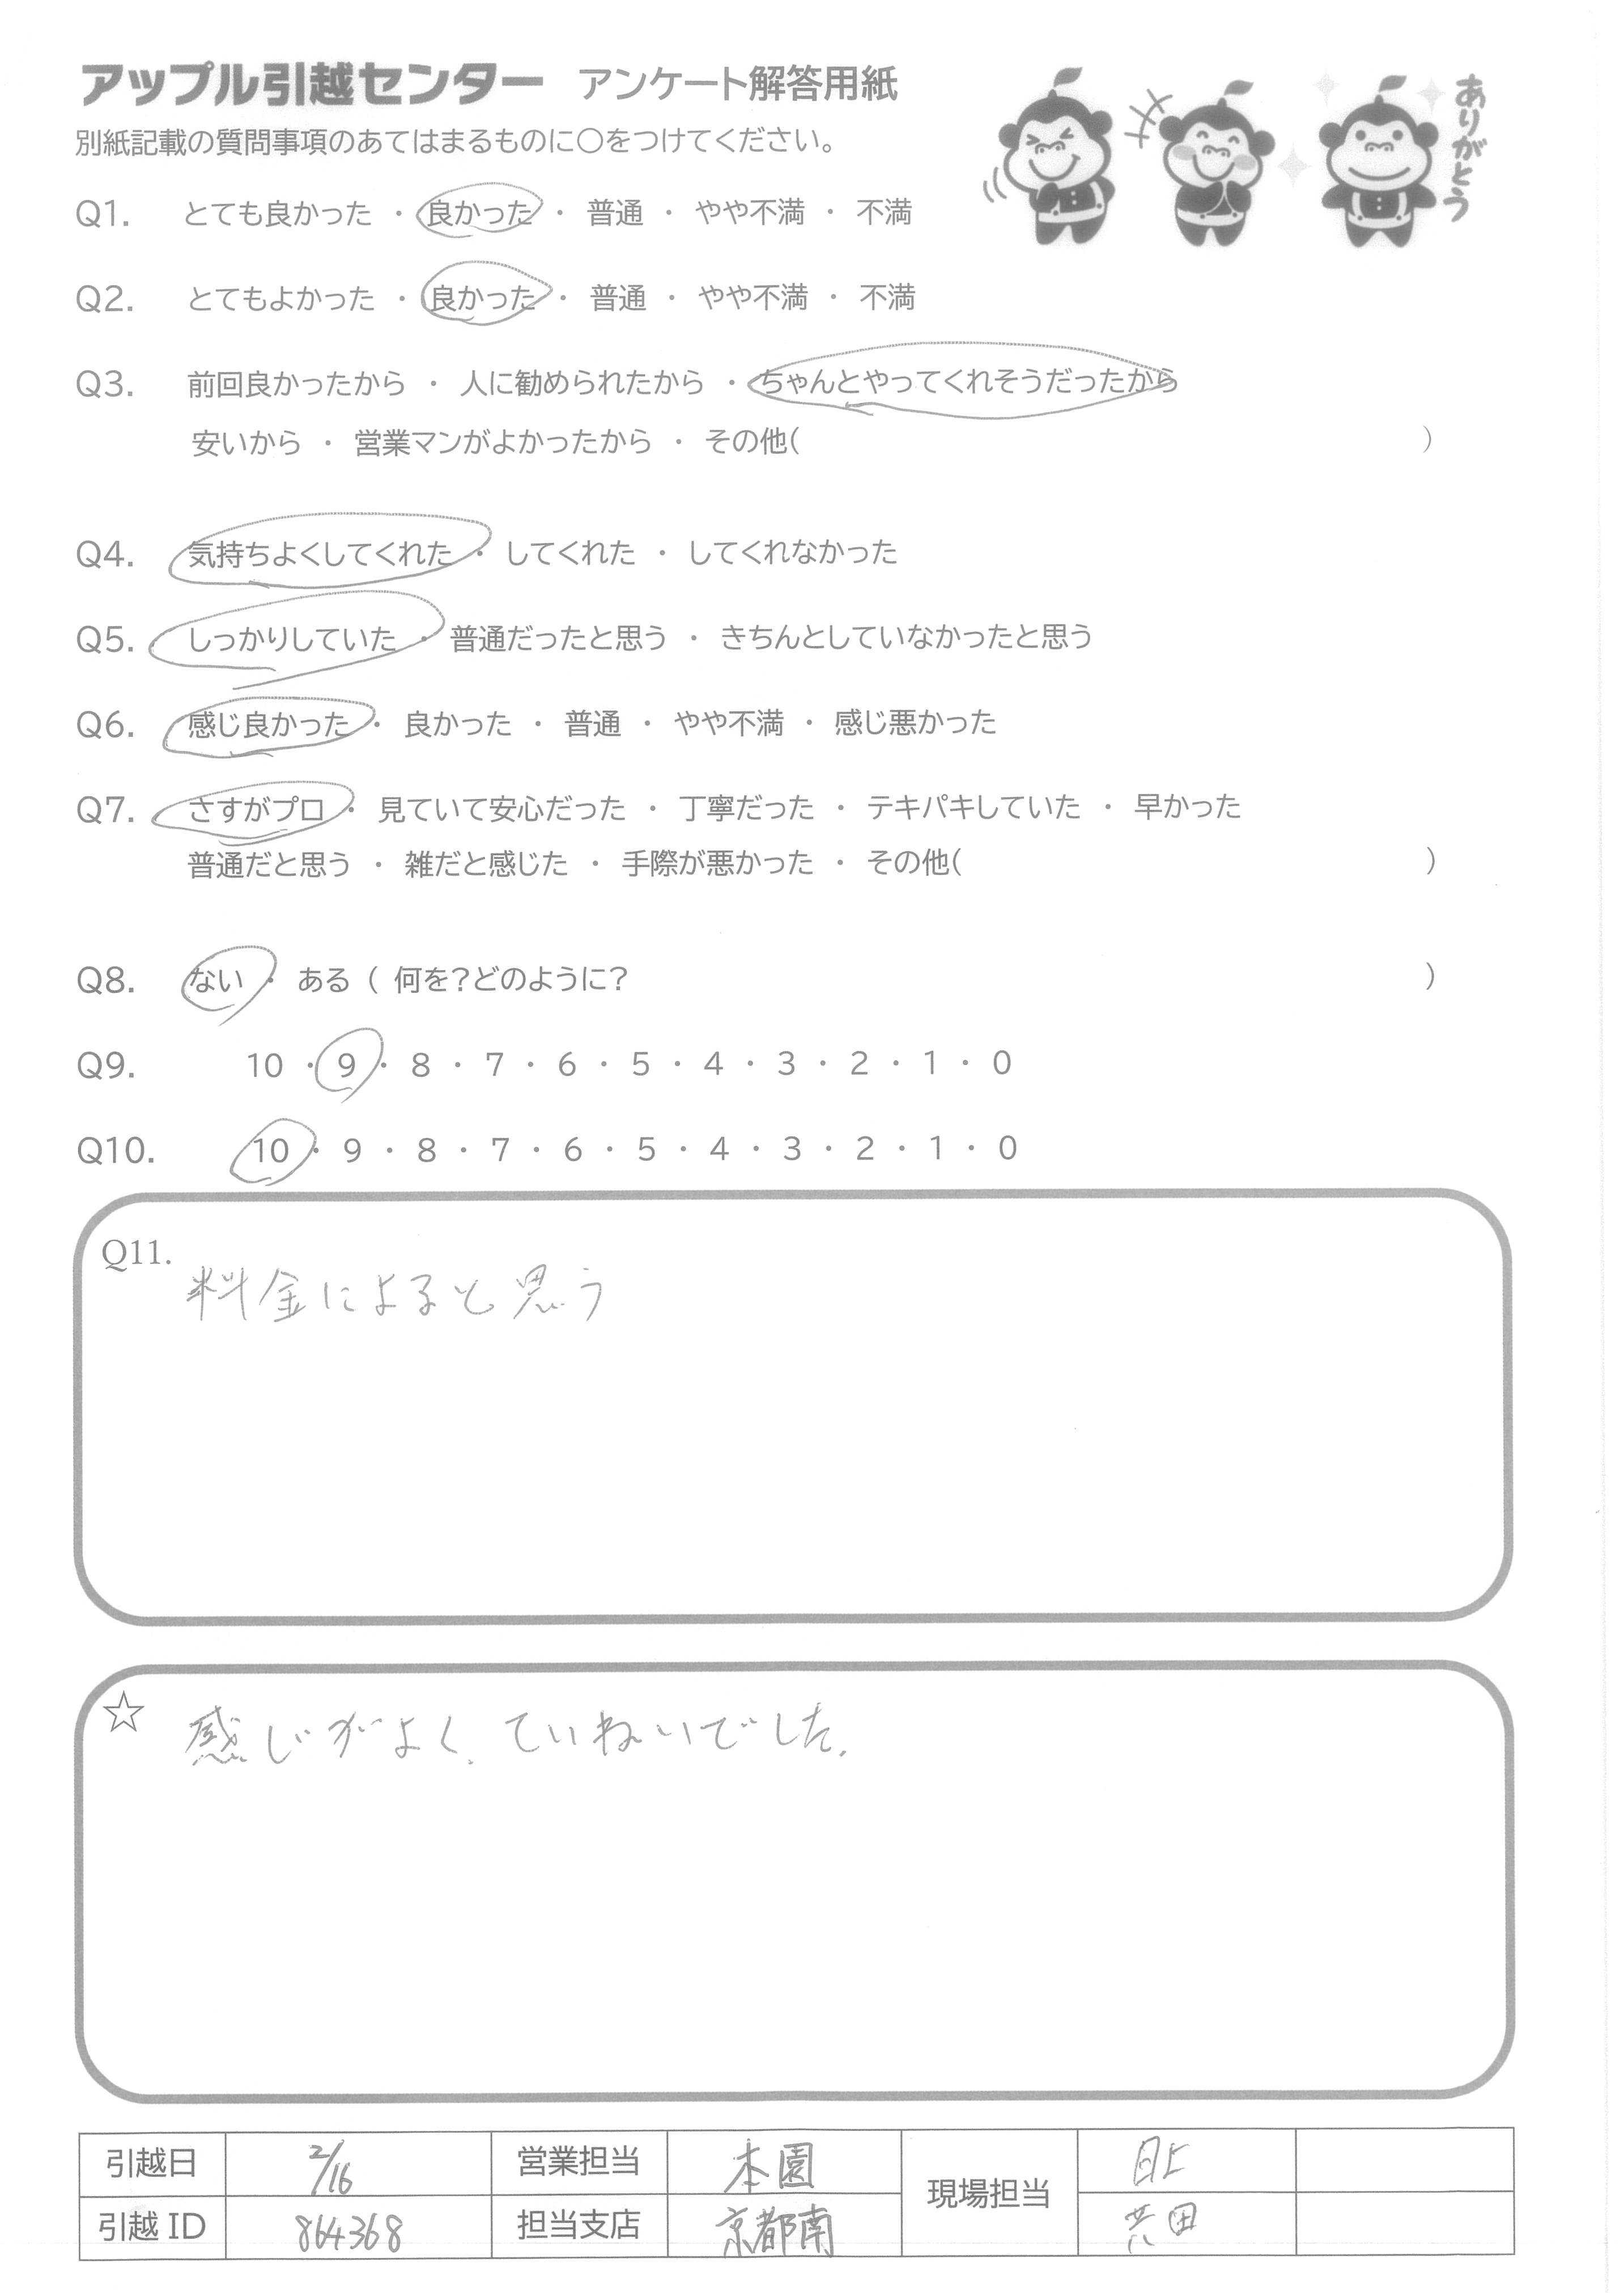 アップル引越センター アンケート解答用紙
ありがとう
別紙記載の質問事項のあてはまるものに〇をつけてください。
Q1. とても良かった ・ 良かった ・ 普通 ・ やや不満 ・ 不満
Q2. とてもよかった ・ 良かった ・ 普通 ・ やや不満 ・ 不満
Q3. 前回良かったから ・ 人に勧められたから ・ ちゃんとやってくれそうだったから
安いから ・ 営業マンがよかったから ・ その他( )
Q4. 気持ちよくしてくれた ・ してくれた ・ してくれなかった
Q5. しっかりしていた ・ 普通だったと思う ・ きちんとしていなかったと思う
Q6. 感じ良かった ・ 良かった ・ 普通 ・ やや不満 ・ 感じ悪かった
Q7. さすがプロ ・ 見ていて安心だった ・ 丁寧だった ・ テキパキしていた ・ 早かった
普通だと思う ・ 雑だと感じた ・ 手際が悪かった ・ その他( )
Q8. ない ・ ある ( 何を?どのように? )
Q9. 10 ・ 9 ・ 8 ・ 7 ・ 6 ・ 5 ・ 4 ・ 3 ・ 2 ・ 1 ・ 0
Q10. 10 ・ 9 ・ 8 ・ 7 ・ 6 ・ 5 ・ 4 ・ 3 ・ 2 ・ 1 ・ 0
Q11.
料金によると思う
☆ 感じがよく、ていねいでした。
引越日 2/16 営業担当 本園 現場担当
引越ID 864368 担当支店 京都南